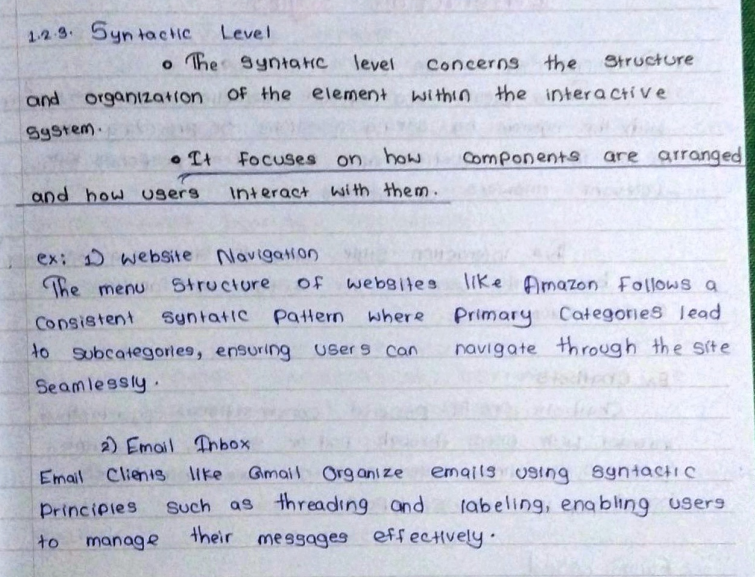 1.2.3. Syntactic Level
o The Syntatic level concerns the structure
and organization of the element within the interactive
System.
• It focuses on how components are arranged
and how users interact with them.
ex: 1) Website Navigation
The menu structure of websites like Amazon Follows a
Consistent Syntatic Pattern where Primary Categories lead
to subcategories, ensuring users can navigate through the site
Seamlessly.
2) Email Inbox
Email Clients like Gmail Organize emails using Syntactic
Principles such as threading and labeling, enabling users
to manage their messages effectively.